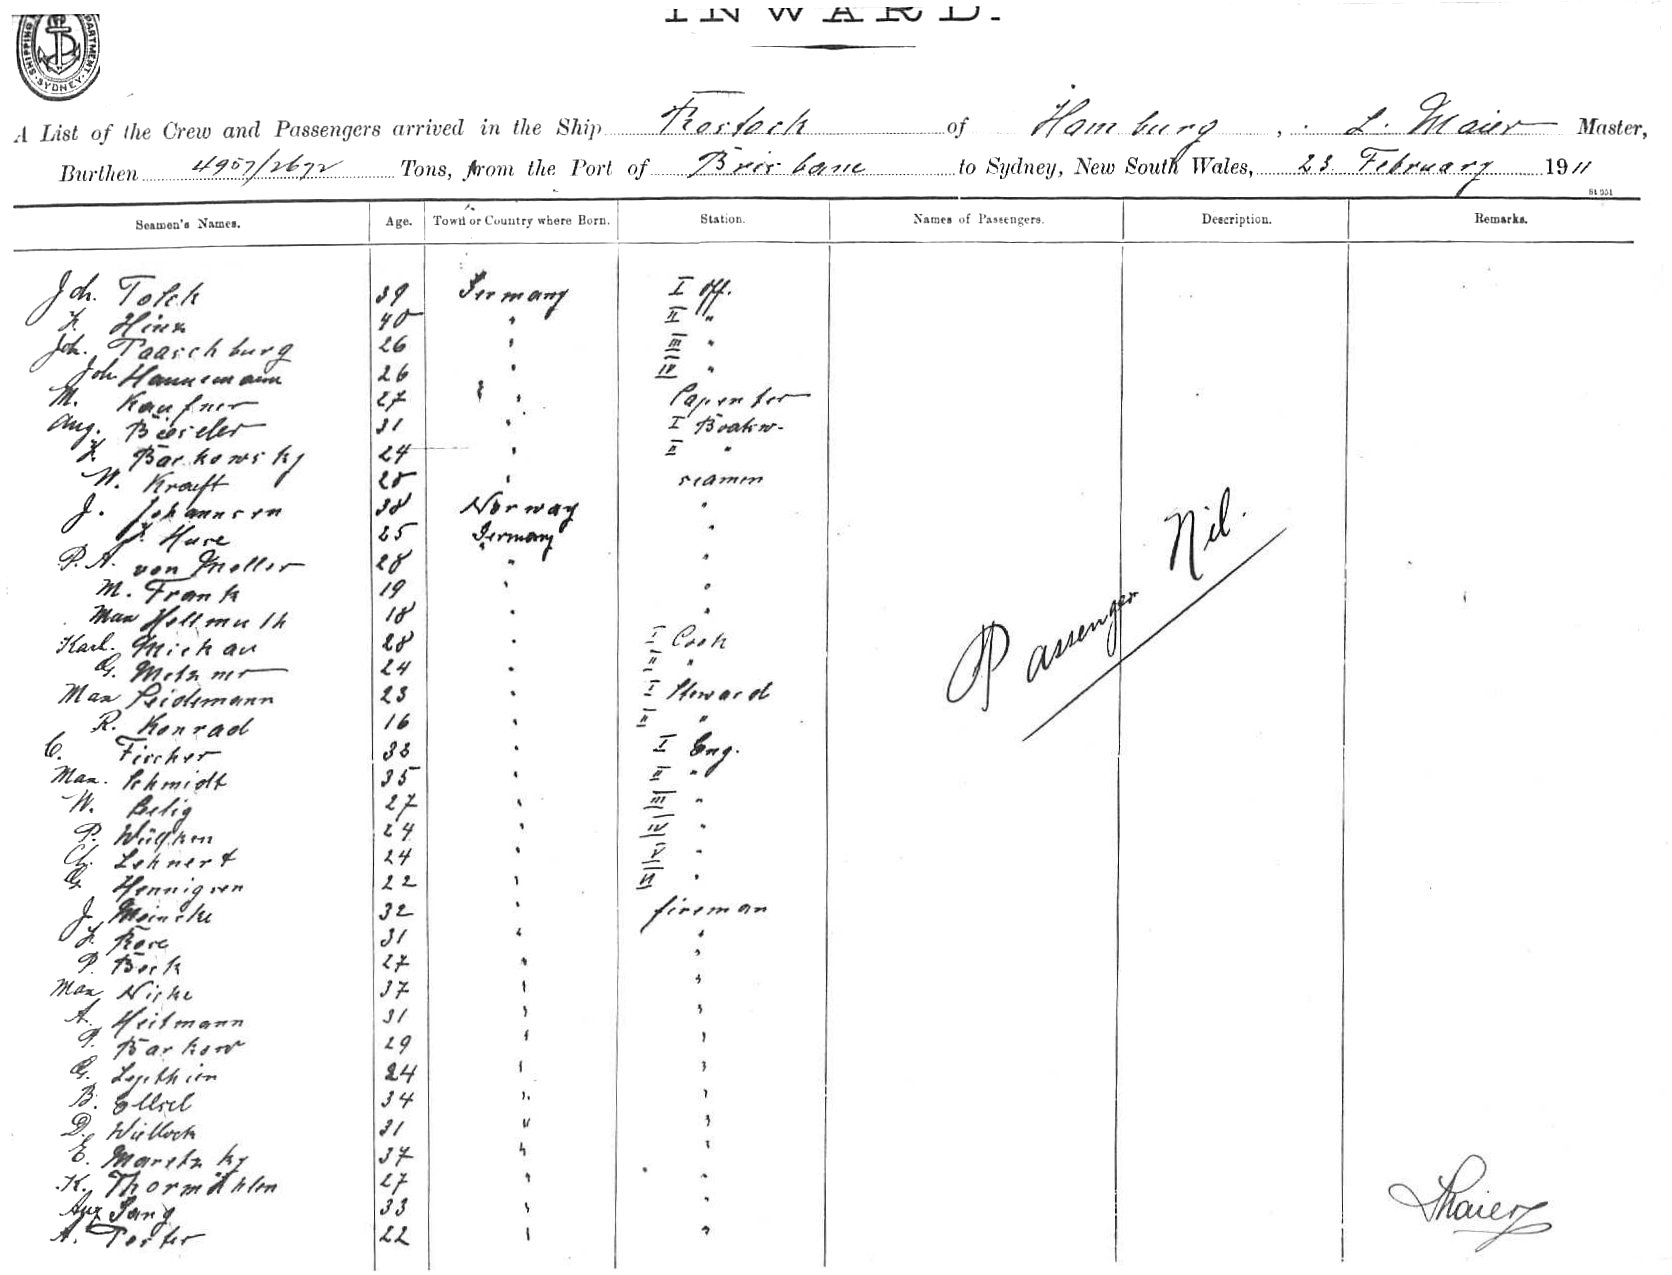 INWARD.
SHIPPING DEPARTMENT. SYDNEY.
A List of the Crew and Passengers arrived in the Ship Rostock of Hamburg, L. Maier Master,
Burthen 4957/2672 Tons, from the Port of Brisbane to Sydney, New South Wales, 23 February 1911
Seamen's Names. Age. Town or Country where Born. Station. Names of Passengers. Description. Remarks.
Joh. Tolck 39 Germany I Off.
Hinz 40 " II "
Joh. Paaschburg 26 " III "
Joh Hannemann 26 " IV "
M. Kaufner 27 " Capenter
Aug. Bieseler 31 " I Boatsw.
Barkowsky 24 " II "
W. Krauft 28 " seamen
J. Johannsen 38 Norway "
Huse 25 Germany "
P. A. von Moller 28 " "
M. Frank 19 " "
Max Hellmuth 18 " "
Karl. Michau 28 " I Cook
G. Metzner 24 " II "
Max Seidemann 23 " I Steward
R. Konrad 16 " II "
C. Fischer 33 " I Eng.
Max. Schmidt 35 " II "
W. Belig 27 " III "
P. 24 " IV "
Lehnert 24 " V "
G. Hennigsen 22 " VI "
J. Meincke 32 " fireman
Rose 31 " "
P. Beck 27 " "
Max Nicke 37 " "
A. Heitmann 31 " "
P. Barkow 29 " "
G. Lepthien 24 " "
B. Ellsel 34 " "
D. Wullock 31 " "
E. Maretzky 37 " "
K. Thormählen 27 " "
Aug Lang 33 " "
A. Porter 22 " "
Passenger Nil.
LMaier